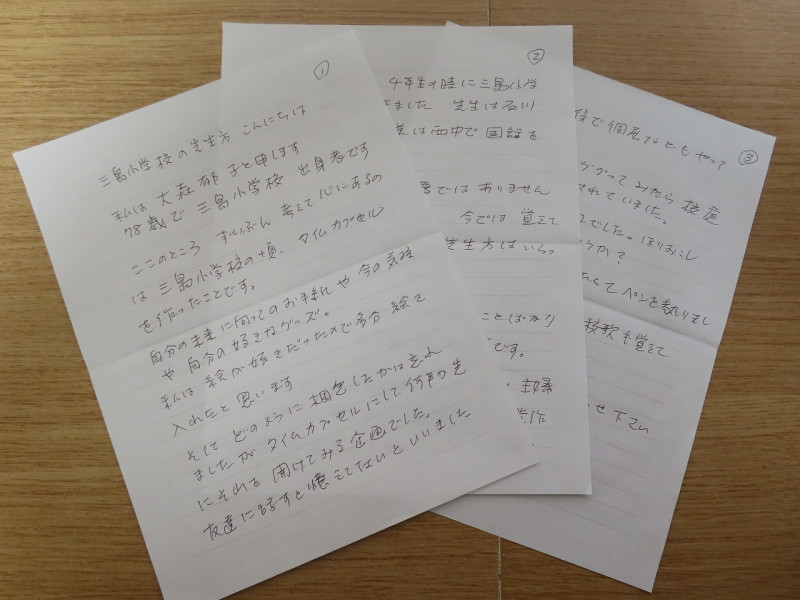 ①
三島小学校の先生方 こんにちは
私は 大森郁子と申します
78歳で 三島小学校 出身者です
ここのところ ずいぶん 考えて 心にあるの
は 三島小学校の頃、タイムカプセル
を作ったことです。
自分の未来に向ってのお手紙や 今の気持
や 自分の好きなグッズ。
私は 絵が好きだったので多分 絵を
入れたと思います
そして どのように 梱包したかは忘れ
ましたが タイムカプセルにして何年か先
にそれを 開けてみる企画でした。
友達に話すと憶えてないといいました
②
4年生の時に三島小学
ました 先生は石川
先は西中で国語を
ではありません
今では 覚えて
先生方はいらっ
ことばかり
です。
・主婦
③
後で個展などもやって
ググってみたら 校庭
されていました。
でした。ほりおこし
うか?
たくてペンを執りまし
校歌も覚えて
せ下さい